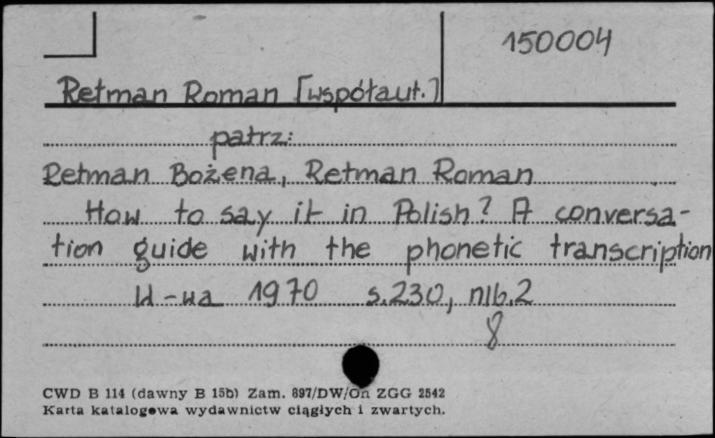 150004
Retman Roman [współaut.]
patrz:
Retman Bożena, Retman Roman
How to say it in Polish? A conversa-
tion guide with the phonetic transcription
W-wa 1970 s.230, nlb.2
8
CWD B 114 (dawny B 15b) Zam. 897/DW/On ZGG 2542
Karta katalogowa wydawnictw ciągłych i zwartych.